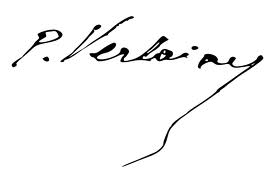 P. Verlaine